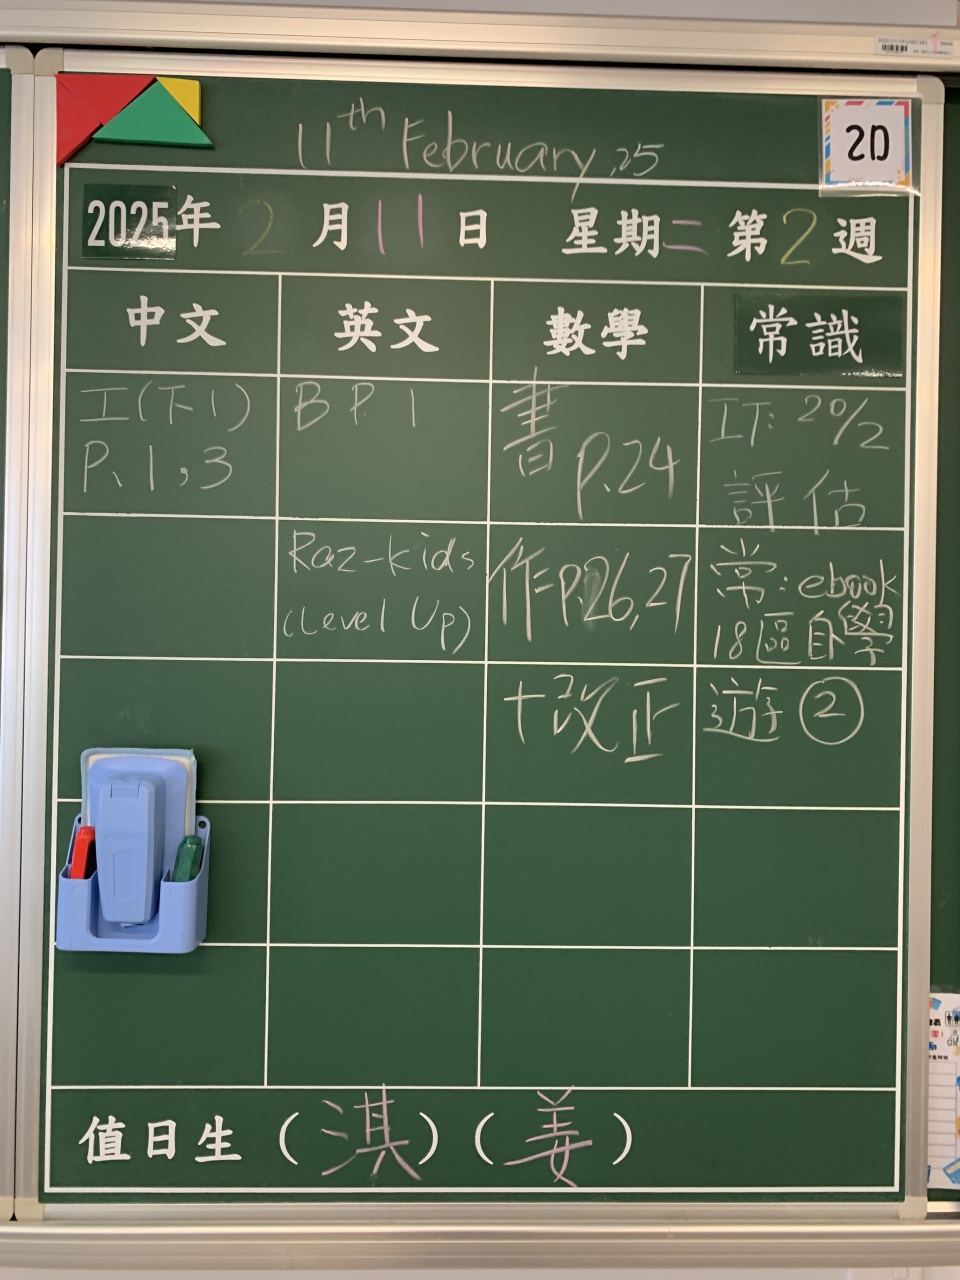 11th February, 25
2D
2025年 2 月 11 日 星期二 第 2 週
中文 英文 數學 常識
工(下1)
P.1,3
B P.1
書 p.24
IT: 20/2
評估
Raz-kids
(Level Up)
作:p.26,27
常: ebook
18區自學
+改正
遊②
值日生 (淇)(姜)